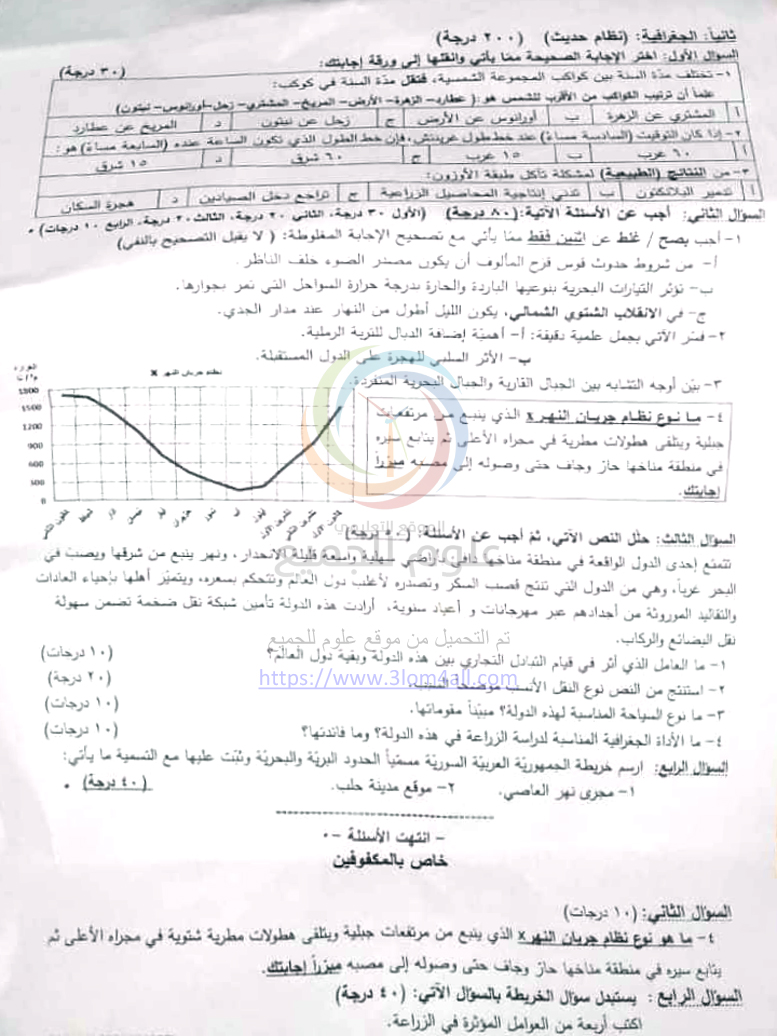 ثانياً: الجغرافية: (نظام حديث) (٢٠٠ درجة)
السؤال الأول: اختر الإجابة الصحيحة ممّا يأتي وانقلها إلى ورقة إجابتك: (٣٠ درجة)
١- تختلف مدّة السنة بين كواكب المجموعة الشمسية، فتقل مدّة السنة في كوكب:
علماً أن ترتيب الكواكب من الأقرب للشمس هو: (عطارد- الزهرة- الأرض- المريخ- المشتري- زحل- أورانوس- نبتون)
أ المشتري عن الزهرة ب أورانوس عن الأرض ج زحل عن نبتون د المريخ عن عطارد
٢- إذا كان التوقيت (السادسة مساءً) عند خط طول غرينتش، فإن خط الطول الذي تكون الساعة عنده (السابعة مساءً) هو:
أ ٦٠ غرب ب ١٥ غرب ج ٦٠ شرق د ١٥ شرق
٣- من النتائج (الطبيعية) لمشكلة تآكل طبقة الأوزون:
أ تدمير البلانكتون ب تدني إنتاجية المحاصيل الزراعية ج تراجع دخل الصيادين د هجرة السكان
السؤال الثاني: أجب عن الأسئلة الآتية: (٨٠ درجة) (الأول ٣٠ درجة، الثاني ٢٠ درجة، الثالث ٢٠ درجة، الرابع ١٠ درجات)
١- أجب بصح / غلط عن اثنين فقط ممّا يأتي مع تصحيح الإجابة المغلوطة: (لا يقبل التصحيح بالنفي)
أ- من شروط حدوث قوس قزح المألوف أن يكون مصدر الضوء خلف الناظر.
ب- تؤثر التيارات البحرية بنوعيها الباردة والحارة بدرجة حرارة السواحل التي تمر بجوارها.
ج- في الانقلاب الشتوي الشمالي، يكون الليل أطول من النهار عند مدار الجدي.
٢- فسّر الآتي بجمل علمية دقيقة: أ- أهميّة إضافة الدبال للتربة الرملية.
ب- الأثر السلبي للهجرة على الدول المستقبلة.
٣- بيّن أوجه التشابه بين الجبال القارية والجبال البحرية المنفردة.
٤- ما نوع نظام جريان النهر x الذي ينبع من مرتفعات
جبلية ويتلقى هطولات مطرية في مجراه الأعلى ثم يتابع سيره
في منطقة مناخها حار وجاف حتى وصوله إلى مصبه مبرزاً
إجابتك.
نظام جريان النهر X
الغزارة
م٣/ثا
1800
1500
1200
900
600
300
0
كانون الثاني شباط آذار نيسان أيار حزيران تموز آب أيلول تشرين الأول تشرين الثاني كانون الأول
السؤال الثالث: حلّل النص الآتي، ثمّ أجب عن الأسئلة: (٥٠ درجة)
تتمتع إحدى الدول الواقعة في منطقة مناخها دافئ بأراضي سهلية واسعة قليلة الانحدار، ونهر ينبع من شرقها ويصب في
البحر غرباً، وهي من الدول التي تنتج قصب السكر وتصدره لأغلب دول العالم وتتحكم بسعره، ويتميّز أهلها بإحياء العادات
والتقاليد الموروثة من أجدادهم عبر مهرجانات و أعياد سنوية، أرادت هذه الدولة تأمين شبكة نقل ضخمة تضمن سهولة
نقل البضائع والركاب.
١- ما العامل الذي أثر في قيام التبادل التجاري بين هذه الدولة وبقية دول العالم؟ (١٠ درجات)
٢- استنتج من النص نوع النقل الأنسب موضحاً السبب. (٢٠ درجة)
٣- ما نوع السياحة المناسبة لهذه الدولة؟ مبيّناً مقوماتها. (١٠ درجات)
٤- ما الأداة الجغرافية المناسبة لدراسة الزراعة في هذه الدولة؟ وما فائدتها؟ (١٠ درجات)
السؤال الرابع: ارسم خريطة الجمهوريّة العربيّة السوريّة مسمّياً الحدود البريّة والبحريّة وثبّت عليها مع التسمية ما يأتي:
١- مجرى نهر العاصي. ٢- موقع مدينة حلب. (٤٠ درجة)
- انتهت الأسئلة -
خاص بالمكفوفين
السؤال الثاني: (١٠ درجات)
٤- ما هو نوع نظام جريان النهر x الذي ينبع من مرتفعات جبلية ويتلقى هطولات مطرية شتوية في مجراه الأعلى ثم
يتابع سيره في منطقة مناخها حار وجاف حتى وصوله إلى مصبه مبرزاً إجابتك.
السؤال الرابع: يستبدل سؤال الخريطة بالسؤال الآتي: (٤٠ درجة)
اكتب أربعة من العوامل المؤثرة في الزراعة.
الموقع التعليمي
علوم للجميع
تم التحميل من موقع علوم للجميع
https://www.3lom4all.com